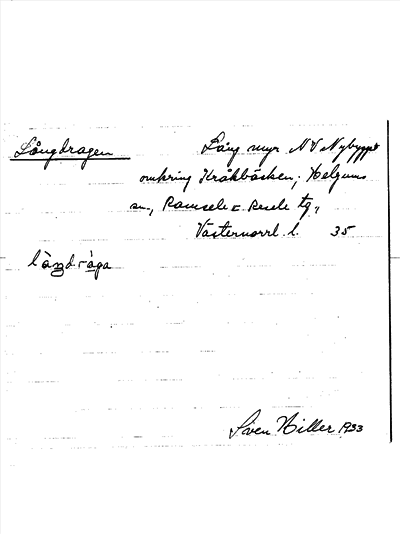 Långdragen Lång myr NV Nybygget
omkring Kråkbäcken; Helgums
sn., Ramsele o. Resele tg.,
Västernorrl. l. 35
làŋdràga
Sven Hiller 1933